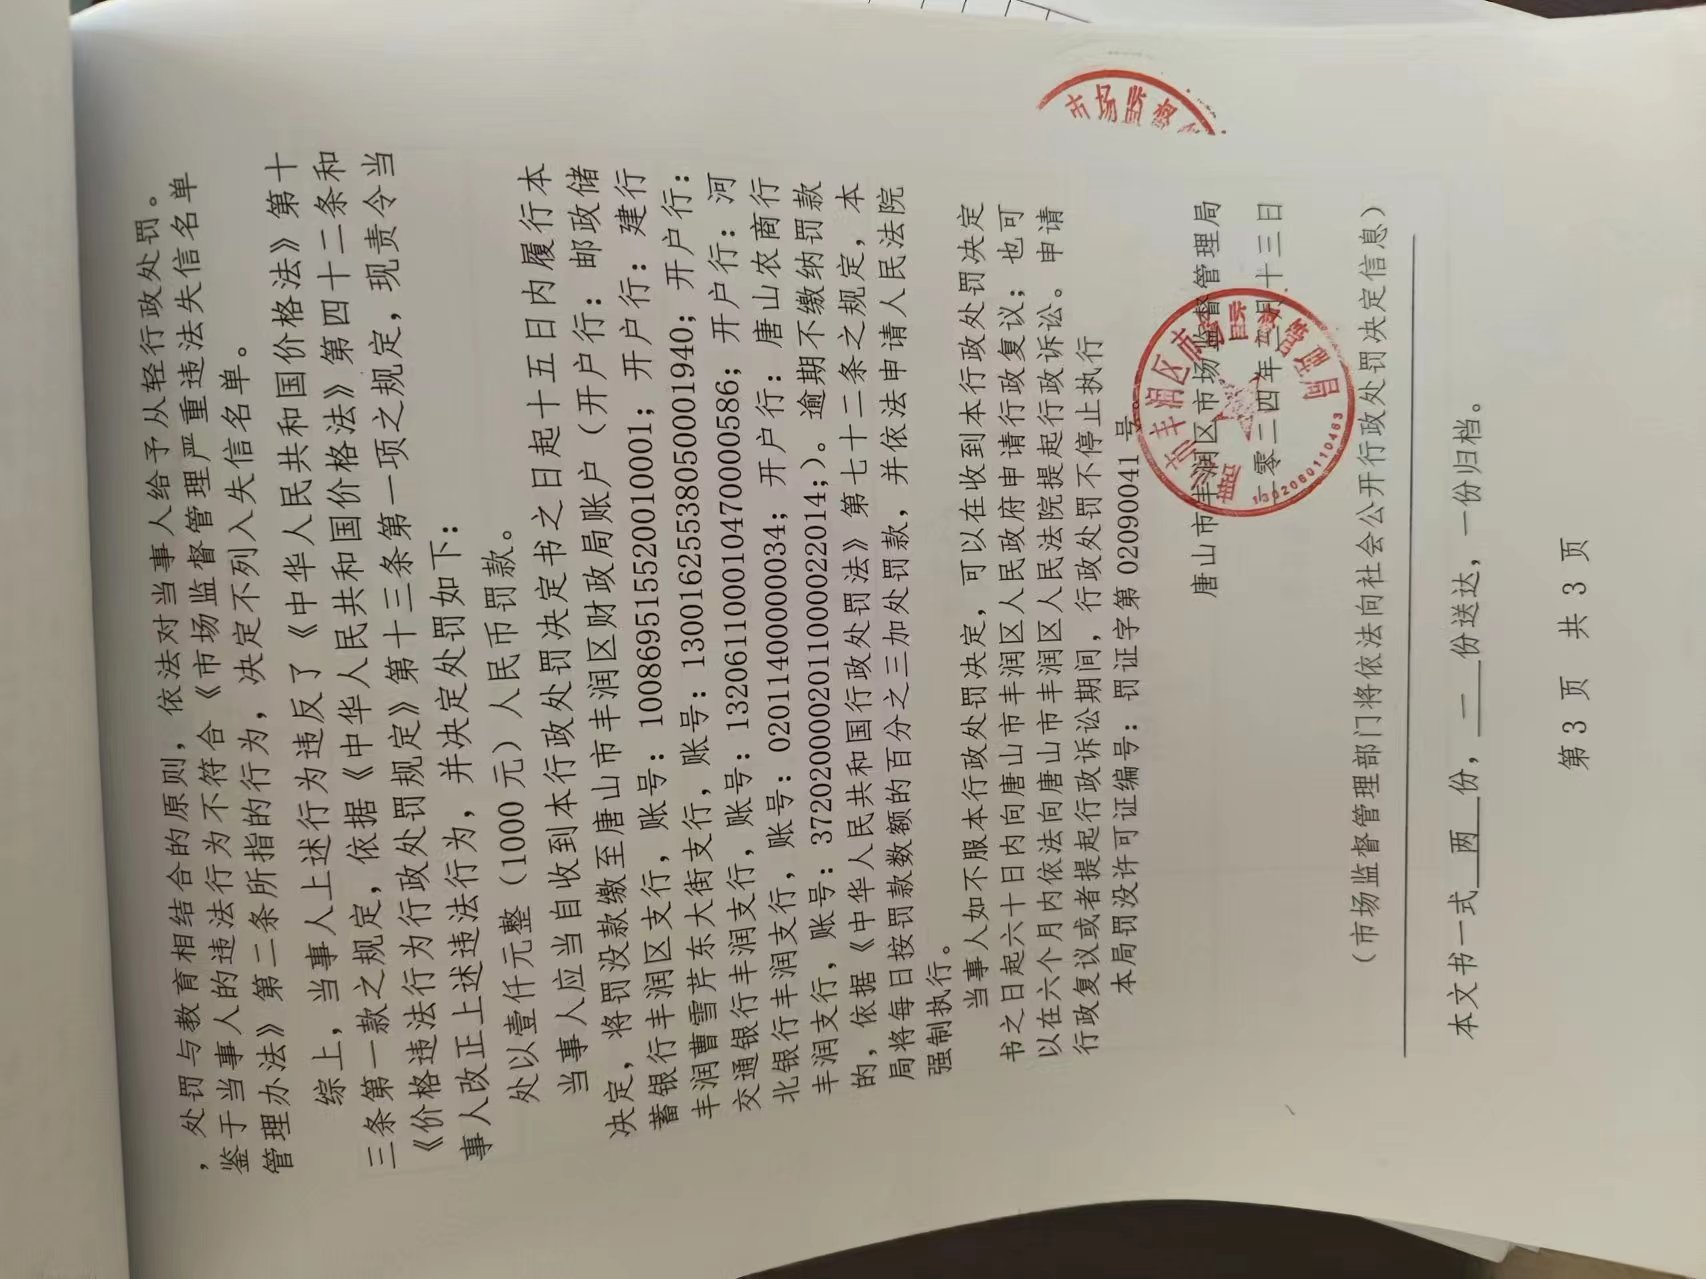 ，处罚与教育相结合的原则，依法对当事人给予从轻行政处罚。
鉴于当事人的违法行为不符合《市场监督管理严重违法失信名单
管理办法》第二条所指的行为，决定不列入失信名单。
综上，当事人上述行为违反了《中华人民共和国价格法》第十
三条第一款之规定，依据《中华人民共和国价格法》第四十二条和
《价格违法行为行政处罚规定》第十三条第一项之规定，现责令当
事人改正上述违法行为，并决定处罚如下：
处以壹仟元整（1000 元）人民币罚款。
当事人应当自收到本行政处罚决定书之日起十五日内履行本
决定，将罚没款缴至唐山市丰润区财政局账户（开户行：邮政储
蓄银行丰润区支行，账号：100869515520010001；开户行：建行
丰润曹雪芹东大街支行，账号：13001625538050001940；开户行：
交通银行丰润支行，账号：132061100010470000586；开户行：河
北银行丰润支行，账号：02011400000034；开户行：唐山农商行
丰润支行，账号：37202000020110000222014；）。逾期不缴纳罚款
的，依据《中华人民共和国行政处罚法》第七十二条之规定，本
局将每日按罚款数额的百分之三加处罚款，并依法申请人民法院
强制执行。
当事人如不服本行政处罚决定，可以在收到本行政处罚决定
书之日起六十日内向唐山市丰润区人民政府申请行政复议；也可
以在六个月内依法向唐山市丰润区人民法院提起行政诉讼。申请
行政复议或者提起行政诉讼期间，行政处罚不停止执行
本局罚没许可证编号：罚证字第 02090041 号。
市场监督
唐山市丰润区市场监督管理局
二零二四年 月十三日
1302080110463
（市场监督管理部门将依法向社会公开行政处罚决定信息）
本文书一式 两 份，一 份送达，一份归档。
第 3 页 共 3 页